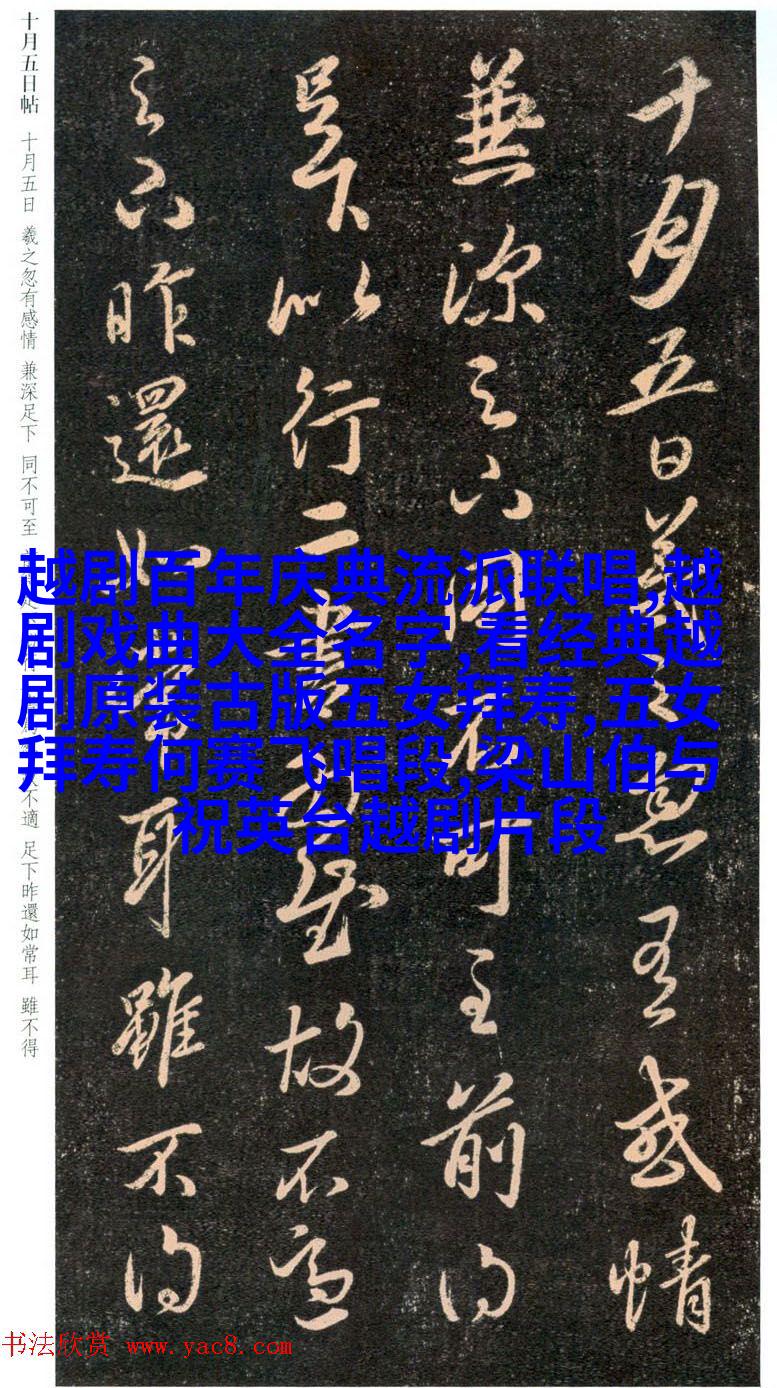 十月五日羲之忽有感情
兼深足下同不可至前得
下以行二書故不適
足下昨還如常耳雖不得
十月五日帖 十月五日 羲之忽有感情 兼深足下 同不可至 不適 足下昨還如常耳 雖不得
越剧百年庆典流派联唱,越
剧戏曲大全名字,看经典越
剧原装古版五女拜寿,五女
拜寿何赛飞唱段,梁山伯与
祝英台越剧片段
书法欣赏 www.yac8.com